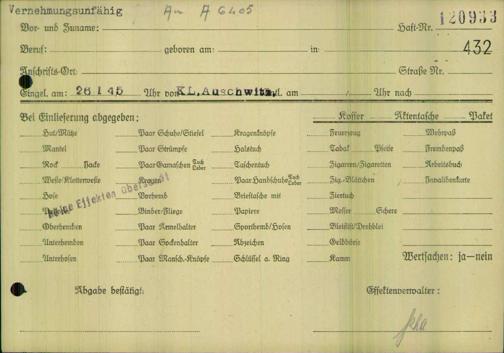 Vernehmungsunfähig An A 6405
Vor- und Zuname: Haft-Nr. 120933
Beruf: geboren am: in: 432
Anschrifts-Ort: Straße Nr.
Eingel. am: 26 1 45 Uhr von KL. Auschwitz, am / Uhr nach
Bei Einlieferung abgegeben: Koffer Aktentasche Paket
Hut/Mütze Paar Schuhe/Stiefel Kragenknöpfe Feuerzeug Wehrpaß
Mantel Paar Strümpfe Halstuch Tabak Pfeife Fremdenpaß
Rock Jacke Paar Gamaschen Tuch Leder Taschentuch Zigarren/Zigaretten Arbeitsbuch
Weste/Kletterweste Kragen Paar Handschuhe Tuch Leder Zig.-Blättchen Invalidenkarte
Hose Vorhemd Brieftasche mit Ziertuch
Binder/Fliege Papiere Messer Schere
Oberhemden Paar Ärmelhalter Sporthemd/Hosen Bleistift/Drehblei
Unterhemden Paar Sockenhalter Abzeichen Geldbörse
Unterhosen Paar Mansch.-Knöpfe Schlüssel a. Ring Kamm Wertsachen: ja—nein
keine Effekten übersandt
Abgabe bestätigt: Effektenverwalter: